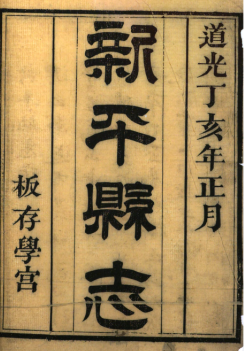 道光丁亥年正月
新平縣志
板存學宮